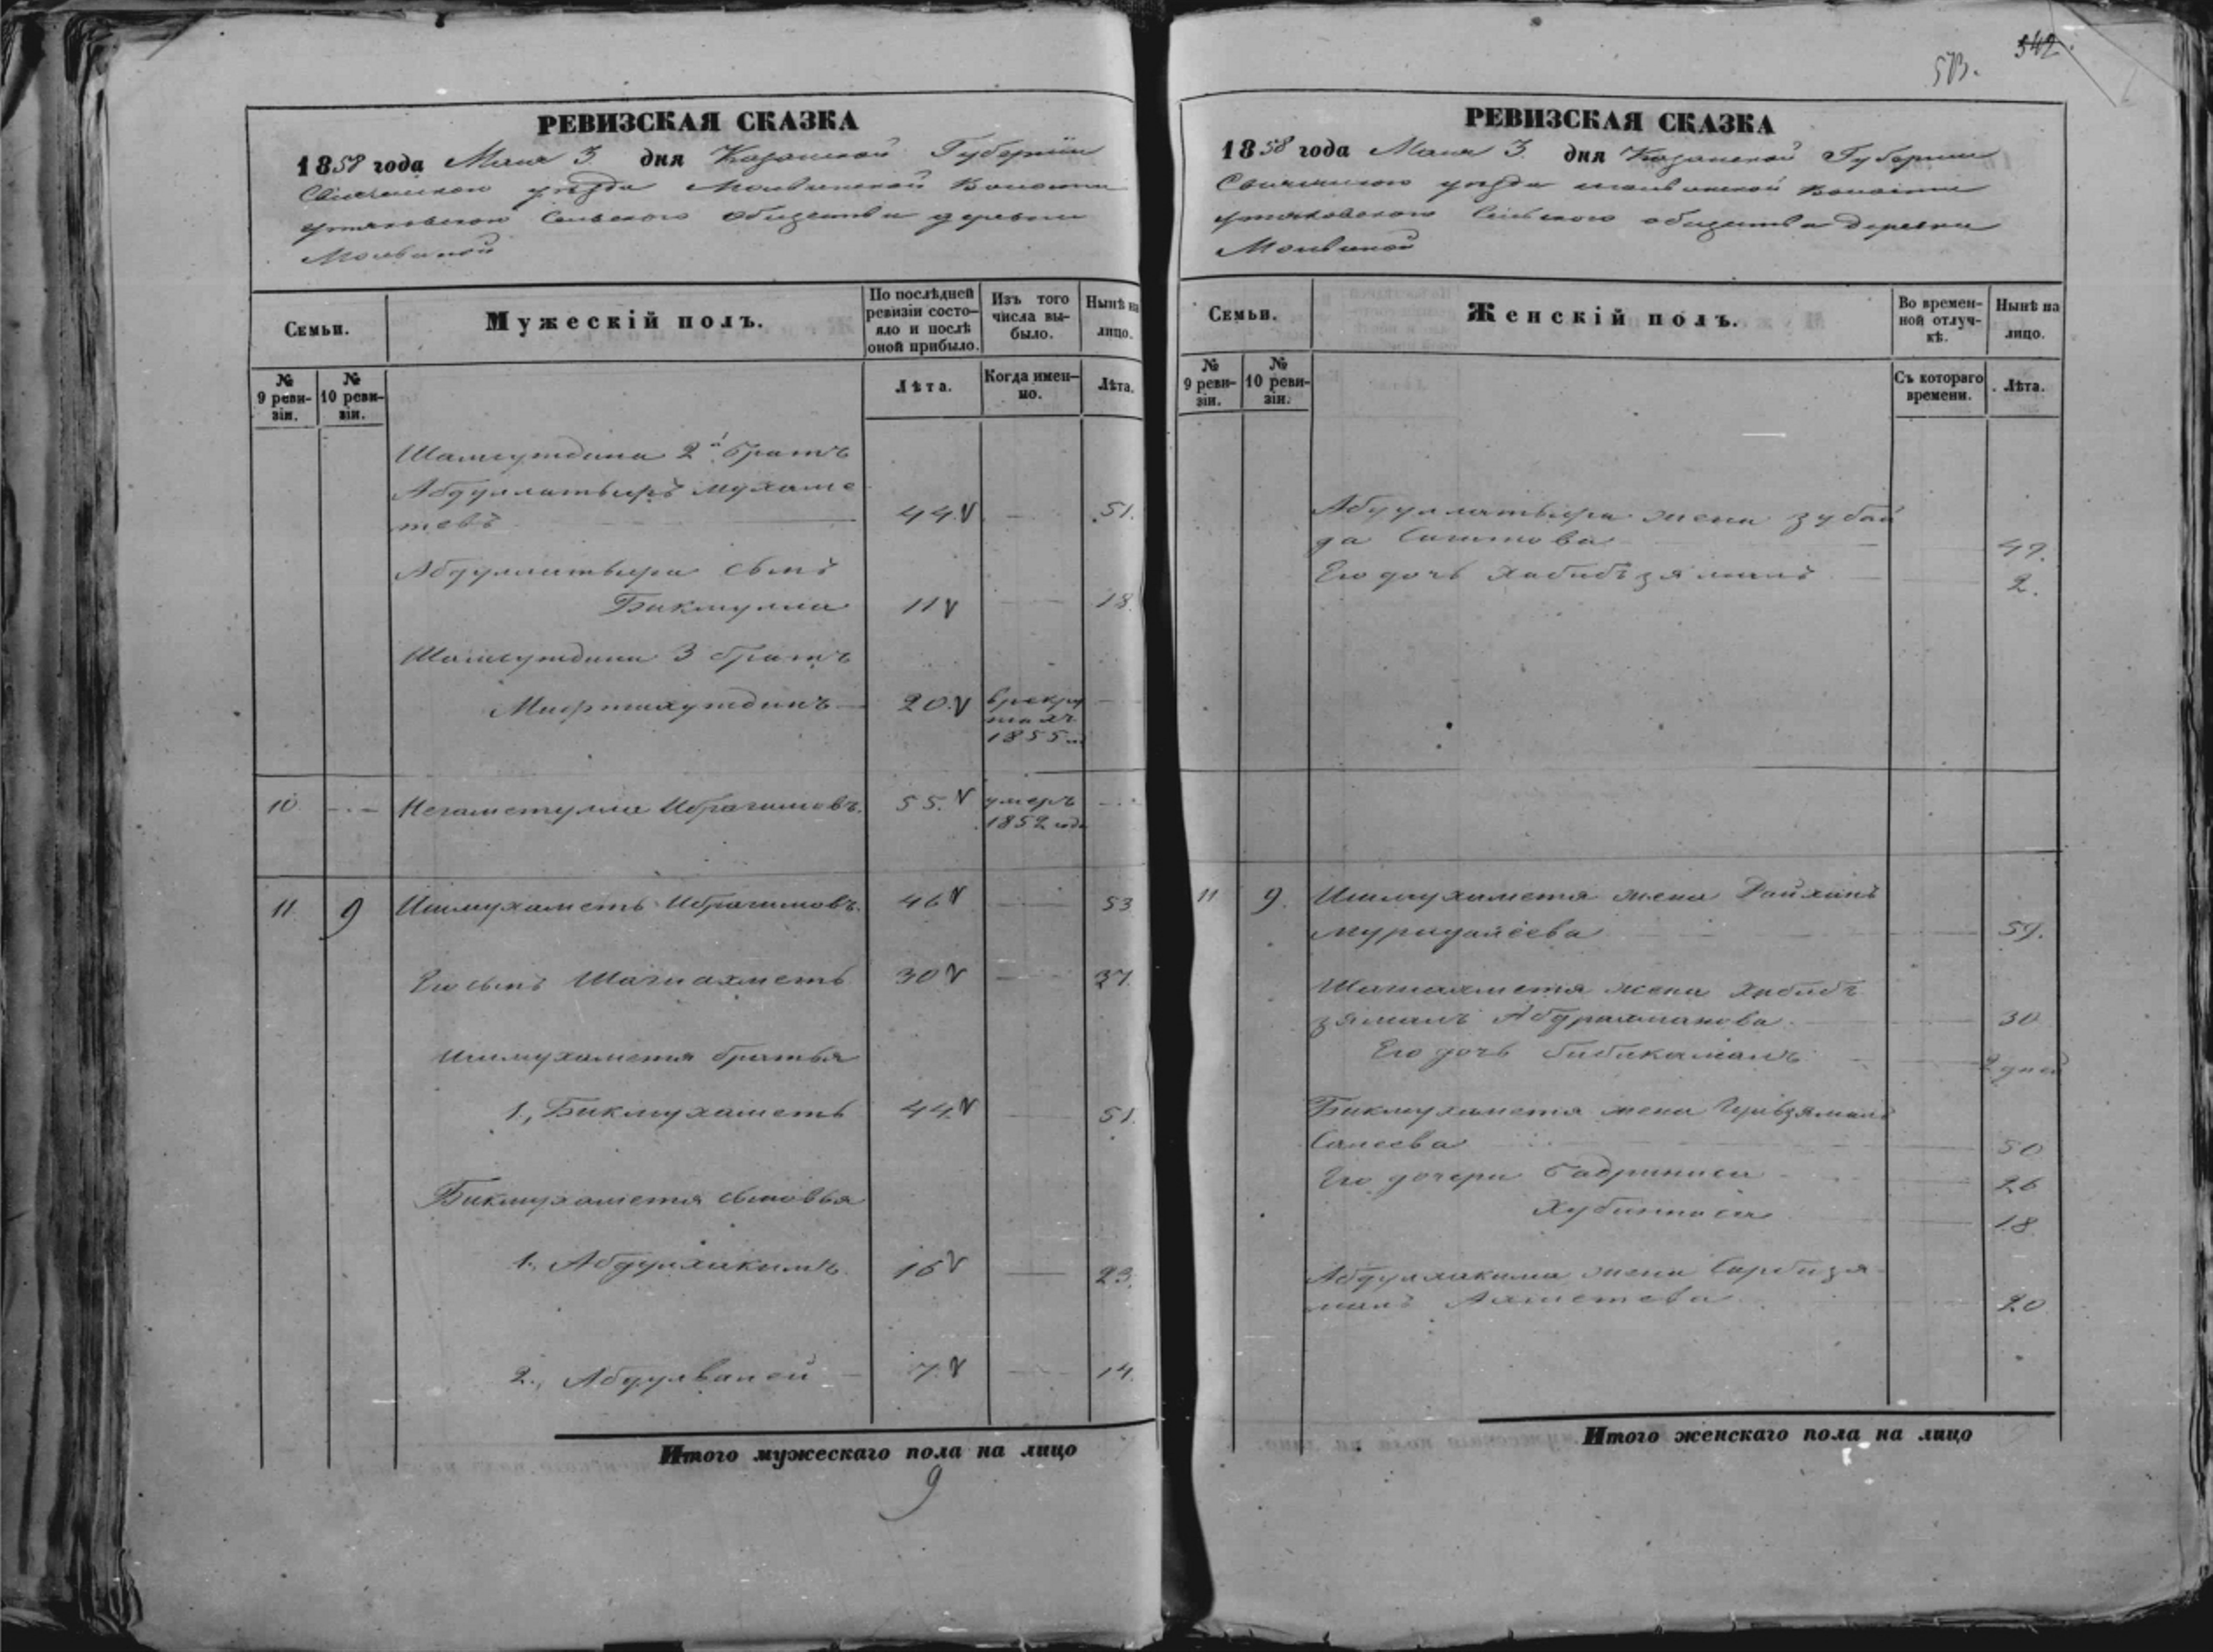 542.
573.
РЕВИЗСКАЯ СКАЗКА
1858 года Мая 3 дня Казанской Губернии
Свіяжскаго уѣзда Молвинской Волости
Утяковскаго Сельскаго общества деревни
Молвиной
Семьи.
Мужескій полъ.
По послѣдней ревизіи состояло и послѣ оной прибыло.
Изъ того числа выбыло.
Нынѣ на лицо.
№ 9 ревизіи.
№ 10 ревизіи.
Лѣта.
Когда именно.
Лѣта.
Шамгутдина 2й братъ
Абдуллатыфъ Мухаме
товъ 44 — 51.
Абдуллатыфа сынъ
Бикмулла 11 — 18.
Шамгутдина 3 братъ
Мифтахутдинъ — 20. в рекру —
тахъ
1855 го
10. — Негаметулла Ибрагимовъ. 55. умеръ —
1852 года
11. 9 Ишмухаметь Ибрагимовъ. 46 — 53
Его сынъ Шагиахметь 30 — 37.
Ишмухаметя братья
1., Бикмухаметь 44. — 51.
Бикмухаметя сыновья
1. Абдулхакимъ. 16 — 23.
2., Абдулванеи — 7. — 14.
Итого мужескаго пола на лицо
9
РЕВИЗСКАЯ СКАЗКА
1858 года Мая 3. дня Казанской Губернии
Свіяжскаго уѣзда Молвинской Волости
Утяковскаго Сельскаго общества деревни
Молвиной
Семьи.
Женскій полъ.
Во временной отлучкѣ.
Нынѣ на лицо.
№ 9 ревизіи.
№ 10 ревизіи.
Съ котораго времени.
Лѣта.
Абдуллатыфа жена Зубай
да Сагитова — 47.
Его дочь Хабибъзямалъ — 2.
11 9. Ишмухаметя жена Райханъ
— 57.
Шагиахметя жена Хабибъ
зямалъ Абдрахманова. — 30
Его дочь Бибикамалъ. — 2 дней
Бикмухаметя жена
— 50
Его дочери Бадриниса — 26
Хубинниса — 18.
Абдулхакима жена Сарбизя
малъ Ахметева — 20
Итого женскаго пола на лицо